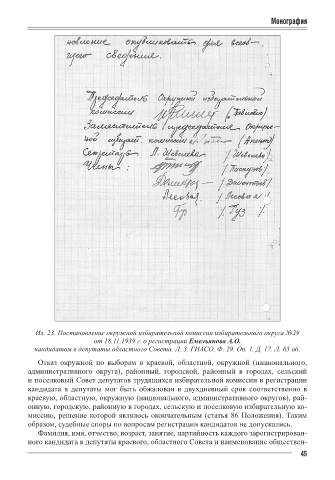 Монография
новление опубликовать для всеоб-
щего сведения.
Председатель Окружной избирательной
комиссии
Заместитель председателя Окруж-
ной избират. комиссии
Секретарь Л. Шевелева /Шевелева/.
Члены:
Ил. 23. Постановление окружной избирательной комиссии избирательного округа №29
от 18.11.1939 г. о регистрации Емельянова А.О.
кандидатом в депутаты областного Совета. Л. 3. ГИАСО. Ф. 29. Оп. 1. Д. 17. Л. 65 об.
Отказ окружной по выборам в краевой, областной, окружной (национального,
административного округа), районный, городской, районный в городах, сельский
и поселковый Совет депутатов трудящихся избирательной комиссии в регистрации
кандидата в депутаты мог быть обжалован в двухдневный срок соответственно в
краевую, областную, окружную (национального, административного округов), рай-
онную, городскую, районную в городах, сельскую и поселковую избирательную ко-
миссию, решение которой являлось окончательным (статья 86 Положения). Таким
образом, судебные споры по вопросам регистрации кандидатов не допускались.
Фамилия, имя, отчество, возраст, занятие, партийность каждого зарегистрирован-
ного кандидата в депутаты краевого, областного Совета и наименование обществен-
45